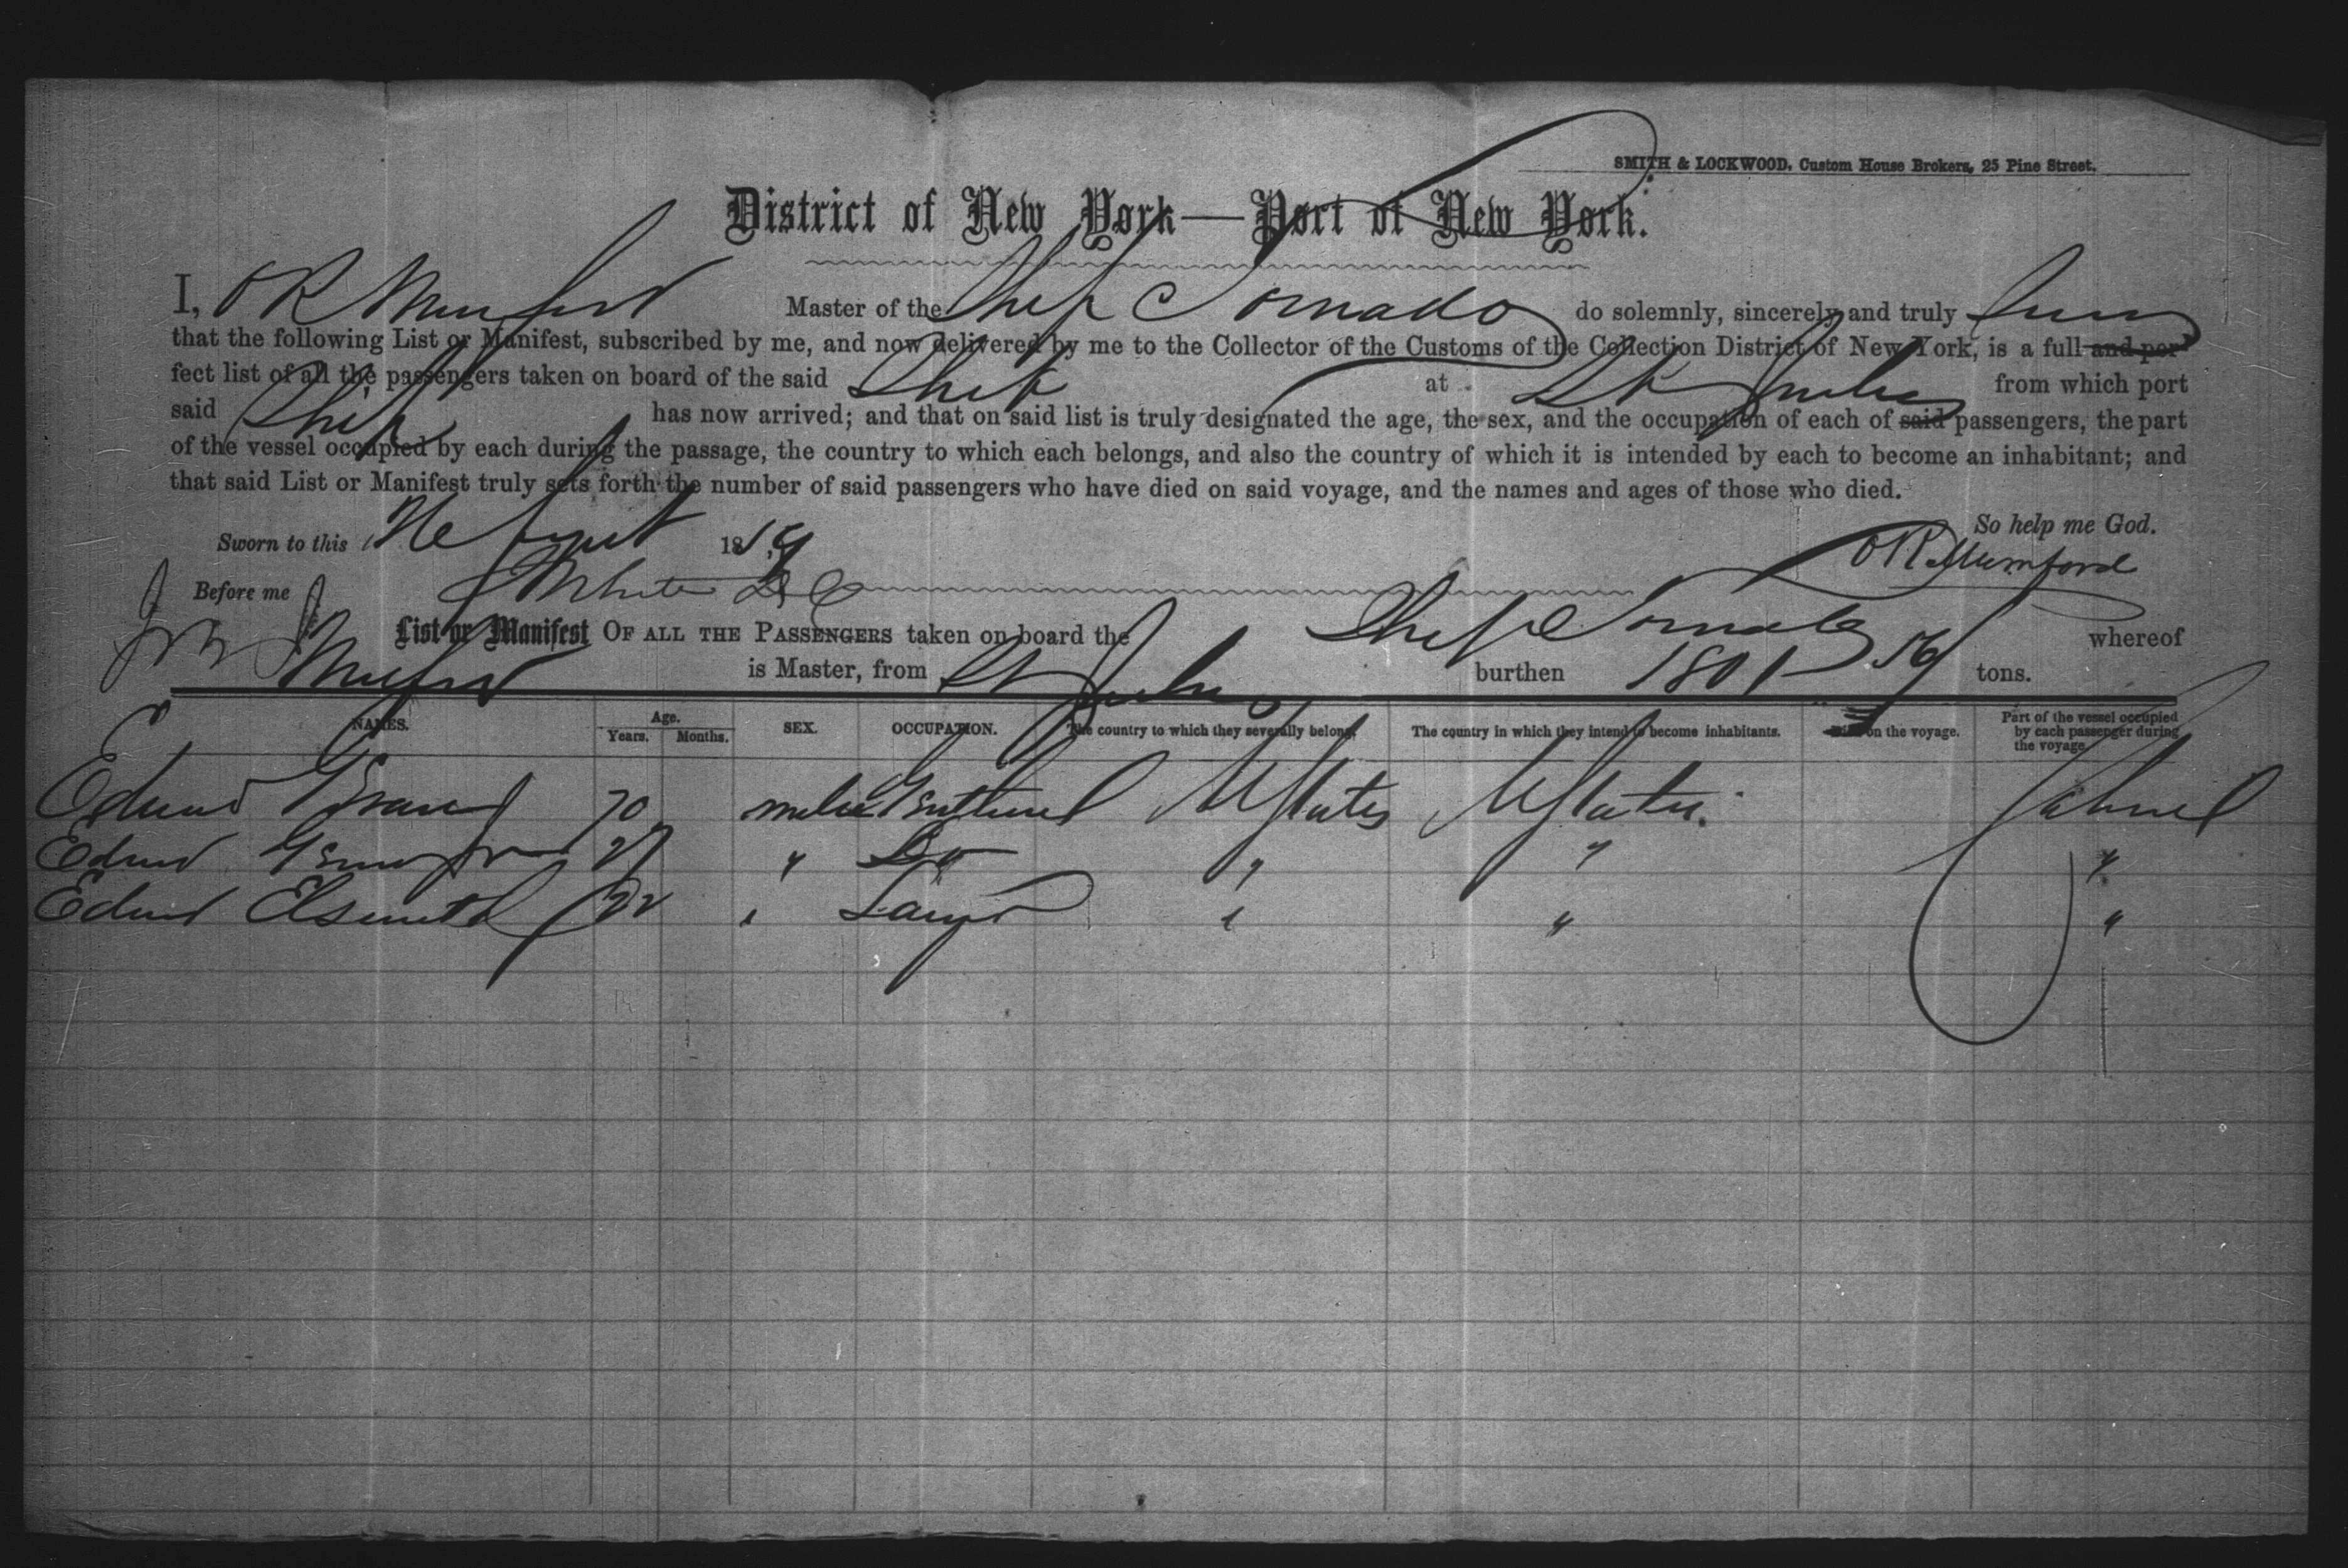 SMITH & LOCKWOOD, Custom House Brokers, 25 Pine Street.
District of New York—Port of New York.
I, O R Mumford Master of the Ship Tornado do solemnly, sincerely and truly
that the following List or Manifest, subscribed by me, and now delivered by me to the Collector of the Customs of the Collection District of New York, is a full and per
fect list of all the passengers taken on board of the said Ship at St from which port
said Ship has now arrived; and that on said list is truly designated the age, the sex, and the occupation of each of said passengers, the part
of the vessel occupied by each during the passage, the country to which each belongs, and also the country of which it is intended by each to become an inhabitant; and
that said List or Manifest truly sets forth the number of said passengers who have died on said voyage, and the names and ages of those who died.
So help me God.
Sworn to this 1859
O R Mumford
Before me White
List or Manifest OF ALL THE PASSENGERS taken on board the Ship Tornado whereof
Mumford is Master, from St burthen 1801 56/ tons.
NAMES. Age. Years. Months. SEX. OCCUPATION. The country to which they severally belong. The country in which they intend to become inhabitants. Died on the voyage. Part of the vessel occupied by each passenger during the voyage.
Edward 70 male U States U States
Edward 27 " Do " " "
Edward 22 " " " "